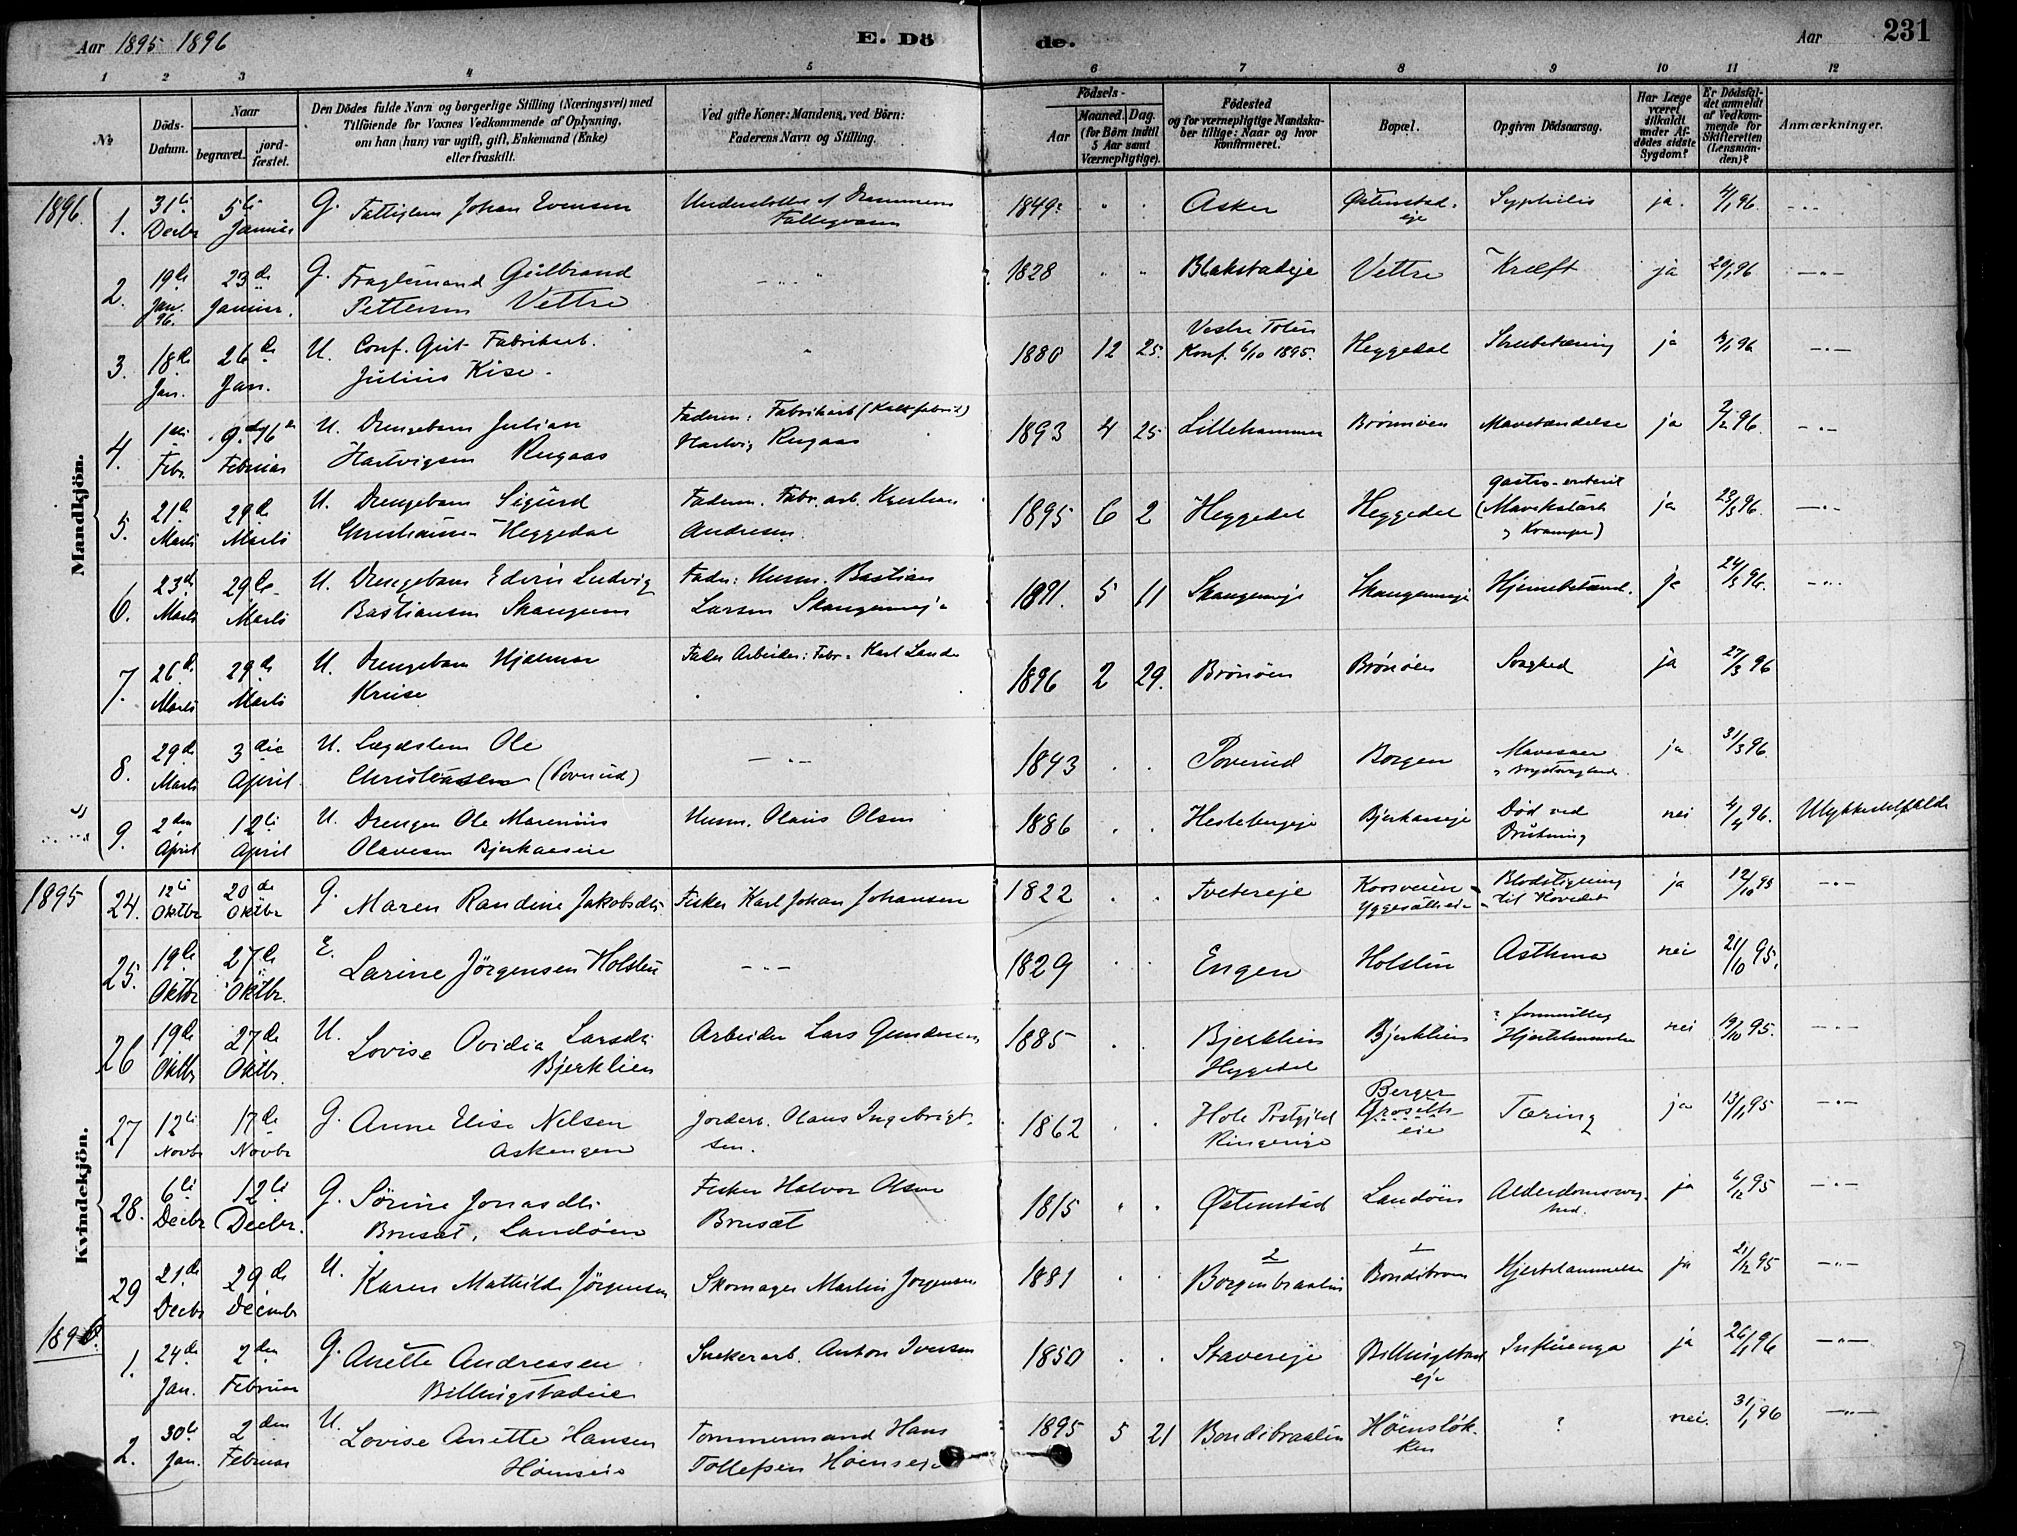 Aar 1895 1896 E. Döde. Aar 231
1 2 3 4 5 6 7 8 9 10 11 12
№
Döds-
Datum.
Naar
begravet.
jord-
fæstet.
Den Dödes fulde Navn og borgerlige Stilling (Næringsvei) med
Tilföiende for Voxnes Vedkommende af Oplysning,
om han (hun) var ugift, gift, Enkemand (Enke)
eller fraskilt.
Ved gifte Koner: Mandens, ved Börn:
Faderens Navn og Stilling.
Födsels-
Aar
Maaned. Dag.
(for Börn indtil
5 Aar samt
Værnepligtige).
Födested
og for værnepligtige Mandska-
ber tillige: Naar og hvor
konfirmeret.
Bopæl.
Opgiven Dödsaarsag.
Har Læge
været
tilkaldt
under Af-
dödes sidste
Sygdom?
Er Dödsfal-
det anmeldt
af Vedkom-
mende for
Skifteretten
(Lensman-
den)?
Anmærkninger.
Mandkjön.
1896.
1. 31te Decbr 5te Januar G. Fattiglem Johan Evensen Understöttet af Drammens Fattigvæsen 1849 Asker Østenstad-eje Syphilis ja. 4/1 96. -"-
2. 19de Jan. 96. 23de Januar. G. Gulbrand Pettersen Vettre -"- 1828 Blakstadeje Vettre Kræft ja 20/1 96 -"-
3. 18de Jan. 26de Jan. U. Conf. Gut. Fabrikarb. Julius Kise. " 1880 12 25. Vestre Toten Konf. 6/10 1895. Heggedal Strubetæring ja 96 -"-
4. 1ste Febr. 9. 16de Februar U. Drengebarn Julian Hartvigsen Rugaas Faderen: Fabrikarb (Kalkfabrik) Hartvig Rugaas 1893 4 25 Lillehammer Brönnöen Mavebetændelse ja 2/2 96. -"-
5. 21de Marts 29de Marts U. Drengebarn Sigurd Christiansen Heggedal Faderen. Fabr. arb. Kristian Andresen. 1895 6 2 Heggedal Heggedal gastro-enterit (Mavekatarh og Kramper) ja 23/3 96. -"-
6. 23de Marts 29de Marts U. Drengebarn Edvin Ludvig Bastiansen Skaugum Fader: Husm. Bastian Larsen Skaugumeje 1891. 5 11 Skaugumeje Skaugumeje Hjernebetænd. ja 24/3 96. -"-
7. 26de Marts 29de Marts U. Drengebarn Hjalmar Kruse Fader Arbeider: Fabr. Karl Lande 1896 2 29. Brönöen Brönöen Svaghed ja 27/3 96
8. 29de Marts 3die April U. Lægdslem Ole Christiansen (Poverud) -"- 1843 Poverud Borgen Mavesaar ja 31/3 96.
9. 2den April 12te April U. Drengen Ole Marenius Olavesen Bjerkaseie Husm. Olaus Olsen 1886 Hestebergeje Bjerkaseje Död ved Drukning nei 4/4 96. Ulykkestilfælde
Kvindekjön.
1895
24. 12te Oktbr 20de Oktbr G. Maren Randine Jakobsdtr. Fisker Karl Johan Johansen 1822 Tvetereje Korsveien Yggesæteie Blodstigning til Hovedet ja 12/10 95 -"-
25. 19de Oktbr 27de Oktbr. E. Larine Jörgensen Holstu -"- 1829 Engen Holstu Asthma nei 21/10 95. -"-
26 19de Oktbr 27de Oktbr. U. Lovise Ovidia Larsdtr. Bjerklien Arbeider Lars Gundersen 1885 Bjerklien Heggedal Bjerklien ? formentlig Hjertelammelse nei 19/10 95. -"-
27 12te Novbr 17de Novbr G. Anne Elise Nilsen Askengen Jordarb. Olaus Ingebrigtsen. 1862 Hole Prstgjeld Ringerige Berger Groseth-eie Tæring ja 13/11 95 -"-
28. 6te Decbr 12te Decbr. G. Sörine Jonasdtr. Brusæt, Landöen Fisker Halvor Olsen Brusæt 1815 Østenstad Landöen Alderdomssvaghed. ja 6/12 95 -"-
29 21de Decbr 29de Decembr U. Karen Mathilde Jörgensen Skomager Martin Jörgensen 1881 2 Borgenbraaten 1 Bondibroen Hjertelammelse ja 21/12 95 -"-
1896.
1. 24de Jan. 2den Februar G. Anette Andreasen Billingstadeie Snekerarb. Anton Iversen 1850 Stavereje Billingstadeje Influenza ja 26/1 96 -"-
2. 30te Jan. 2den Februar U. Lovise Anette Hansen Höinseie Tommermand Hans Tollefsen Höinseje 1895 5 21 Bondibraaten Hönslökken ? nei. 31/1 96 -"-